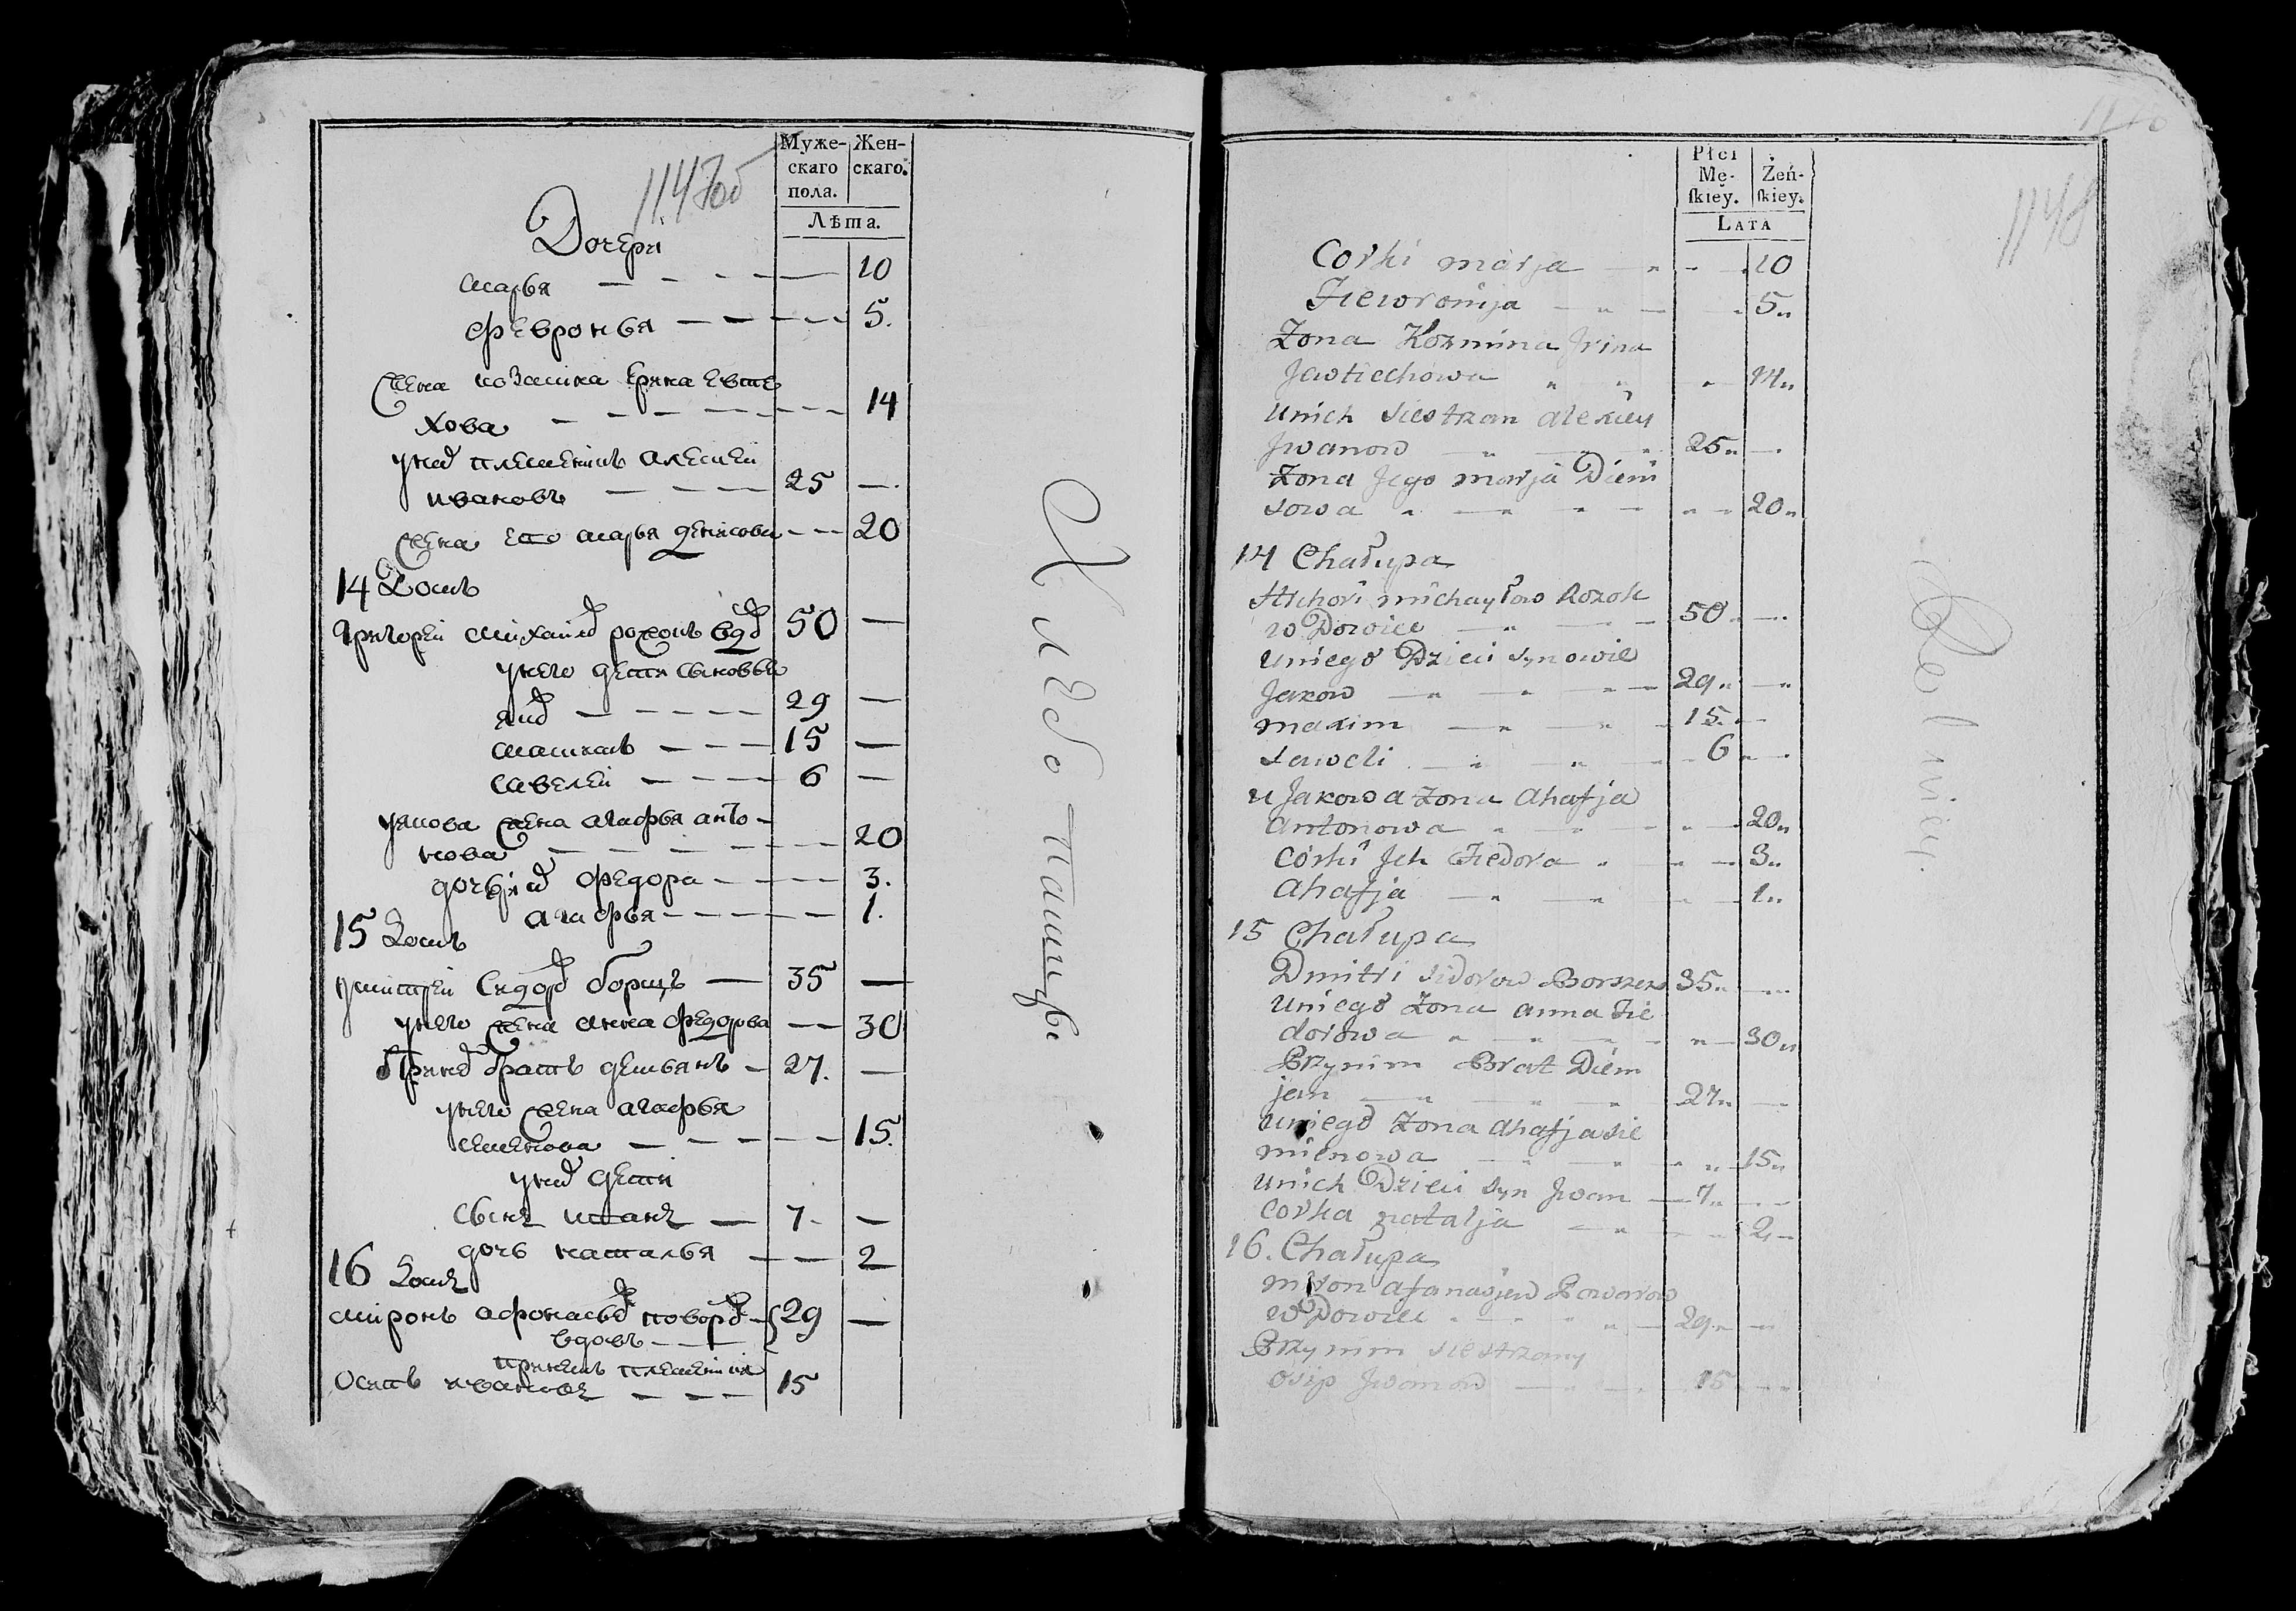 1147об
Муже-
скаго
пола.
Жен-
скаго.
Лѣта.
Дочери
марья — 10
февронья — 5.
жена козмина ирина евте
хова — 14
у них племенник алексеи
иванов — 25 —
жена его марья денисова — 20
14 Домъ
Григореи михаилов рожок вдов 50 —
у него дети сыновья
яков — 29 —
максим — 15 —
савелеи — 6 —
у якова жена агафья анто-
нова — 20
дочери их федора — 3.
агафья — 1.
15 Домъ
дмитреи сидоров борщъ — 35 —
у него жена анна федорова — 30
При нем братъ демьянъ — 27. —
у него жена агафья
семенова — 15.
у них дети
сынъ иванъ — 7. —
дочь наталья — 2
16 Домъ
миронъ афонасьев 29 —
вдовъ —
при немъ племенники
осипъ ивановъ — 15
Хлебопашцы
1148
Płci
Mę-
ſkiey.
Żeń-
ſkiey.
LATA
Corki marja — 10
Fiewronija — 5
Zona Kozmina Jrina
Jewtiechowa — 14
unich siestrzan alexiey
Jwanow — 25 —
Zona Jego marja Dieni
sowa — 20
14 Chałupa
Hrihori michayłow Rozok
wDowiec — 50 —
uniego Dzieci synowie
Jakow — 29 —
maxim — 15 —
saweli — 6 —
u Jakowa zona ahafja
antonowa — 20
corki Jch Fiedora — 3
ahafja — 1
15 Chałupa
Dmitri sidorow Borszcz 35 —
uniego zona anna Fie
dorowa — 30
Przynim Brat Diem
jan — 27 —
uniego zona ahafja sie
mienowa — 15
unich Dzieci syn Jwan — 7 —
corka natalja — 2
16. Chałupa
miron afanasjew
wDowiec — 29 —
Przynim siestrzany
osip Jwanow — 15 —
Rolnicy